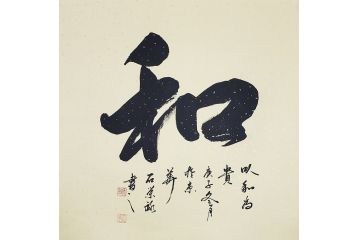 和
以和为
贵
庚子冬月
于京
华
石荣禄
书